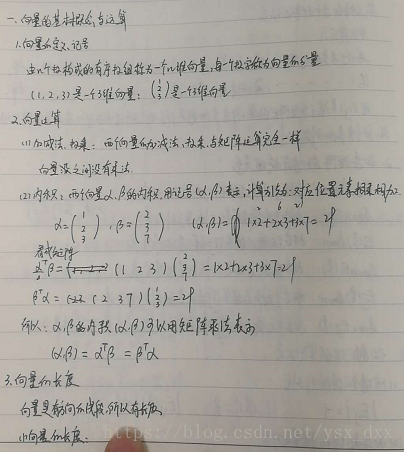 一、向量的基本概念与运算
1.向量的定义、记号
由n个数构成的有序数组称为一个n维向量,每个数字称为向量的分量
(1,2,3)是一个3维向量; (1 2 3)是一个3维向量
2.向量运算
(1)加减法、数乘: 两个向量的加减法、数乘与矩阵运算完全一样
向量没之间没有乘法
(2)内积: 两个向量α,β的内积,用记号(α,β)表示,计算方法为: 对应位置元素相乘相加之
α=(1 2 3), β=(2 3 7) (α,β)= 1×2+2×3+3×7=29
看成矩阵
αᵀβ= (1 2 3)(2 3 7)=1×2+2×3+3×7=29
βᵀα= (2 3 7)(1 2 3)=29
所以: α,β的内积(α,β)可以用矩阵乘法表示
(α,β)=αᵀβ=βᵀα
3.向量的长度
向量是有方向的线段,所以有长度
(1)向量的长度:
https://blog.csdn.net/ysx_dxx